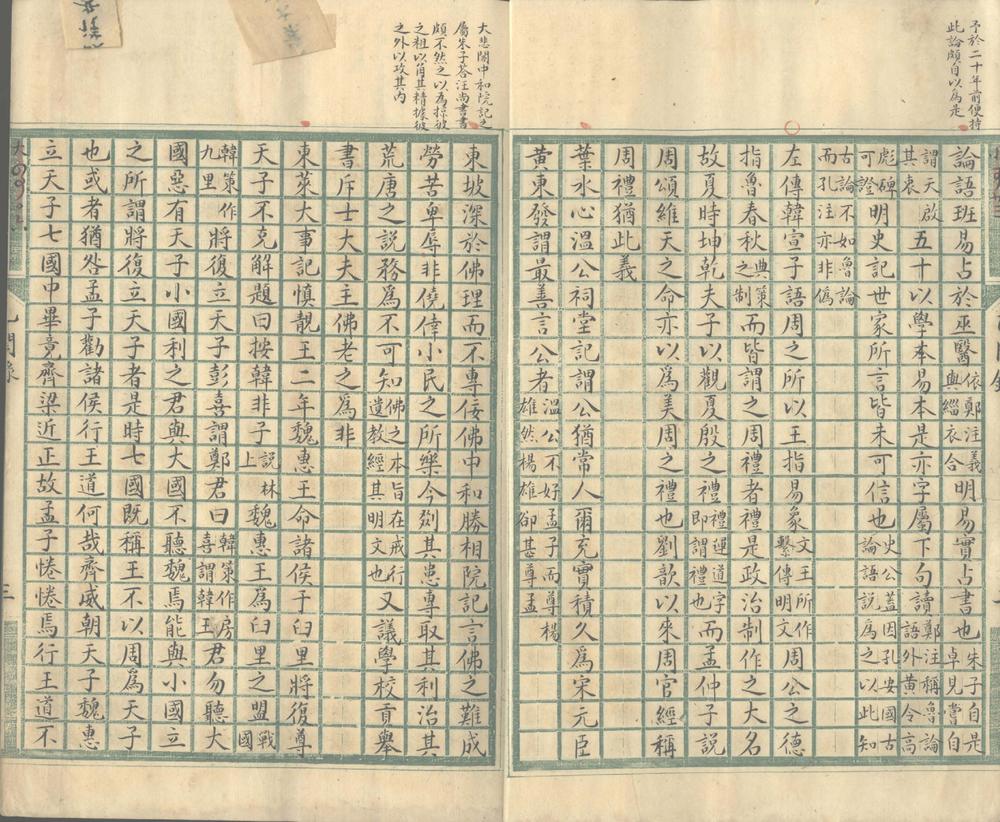 予於二十年前便持
此論頗自以為是
論語班易占於巫醫依鄭注義與緇衣合明易實占書也朱子自是卓見嘗自
謂天啟其衷五十以學本易本是亦字屬下句讀鄭注稱魯論語外黃令高
彪碑可證明史記世家所言皆未可信也史公蓋因孔安國古論語說為之以此知
古論不如魯論而孔注亦非偽
左傳韓宣子語周之所以王指易象文王所作繫傳明文周公之德
指魯春秋典策之制而皆謂之周禮者禮是政治制作之大名
故夏時坤乾夫子以觀夏殷之禮禮運道字即謂禮也而孟仲子說
周頌維天之命亦以為美周之禮也劉歆以來周官經稱
周禮猶此義
葉水心溫公祠堂記謂公猶常人爾充實積久為宋元臣
黃東發謂最善言公者溫公不好孟子而尊楊雄然楊雄卻甚尊孟
大悲閣中和院記之
屬朱子答汪尚書書
頗不然之以為掠彼
之粗以角其精據彼
之外以攻其內
東坡深於佛理而不專佞佛中和勝相院記言佛之難成
勞苦卑辱非僥倖小民之所樂今剟其患專取其利治其
荒唐之說務為不可知佛之本旨在戒行遺教經其明文也又議學校貢舉
書斥士大夫主佛老之為非
東萊大事記慎靚王二年魏惠王命諸侯于臼里將復尊
天子不克解題曰按韓非子說林上魏惠王為臼里之盟戰國
韓策作九里將復立天子彭喜謂鄭君曰韓策作房喜謂韓王君勿聽大
國惡有天子小國利之君與大國不聽魏焉能與小國立
之所謂將復立天子者是時七國既稱王不以周為天子
也或者猶咎孟子勸諸侯行王道何哉齊威朝天子魏惠
立天子七國中畢竟齊梁近正故孟子惓惓焉行王道不
三